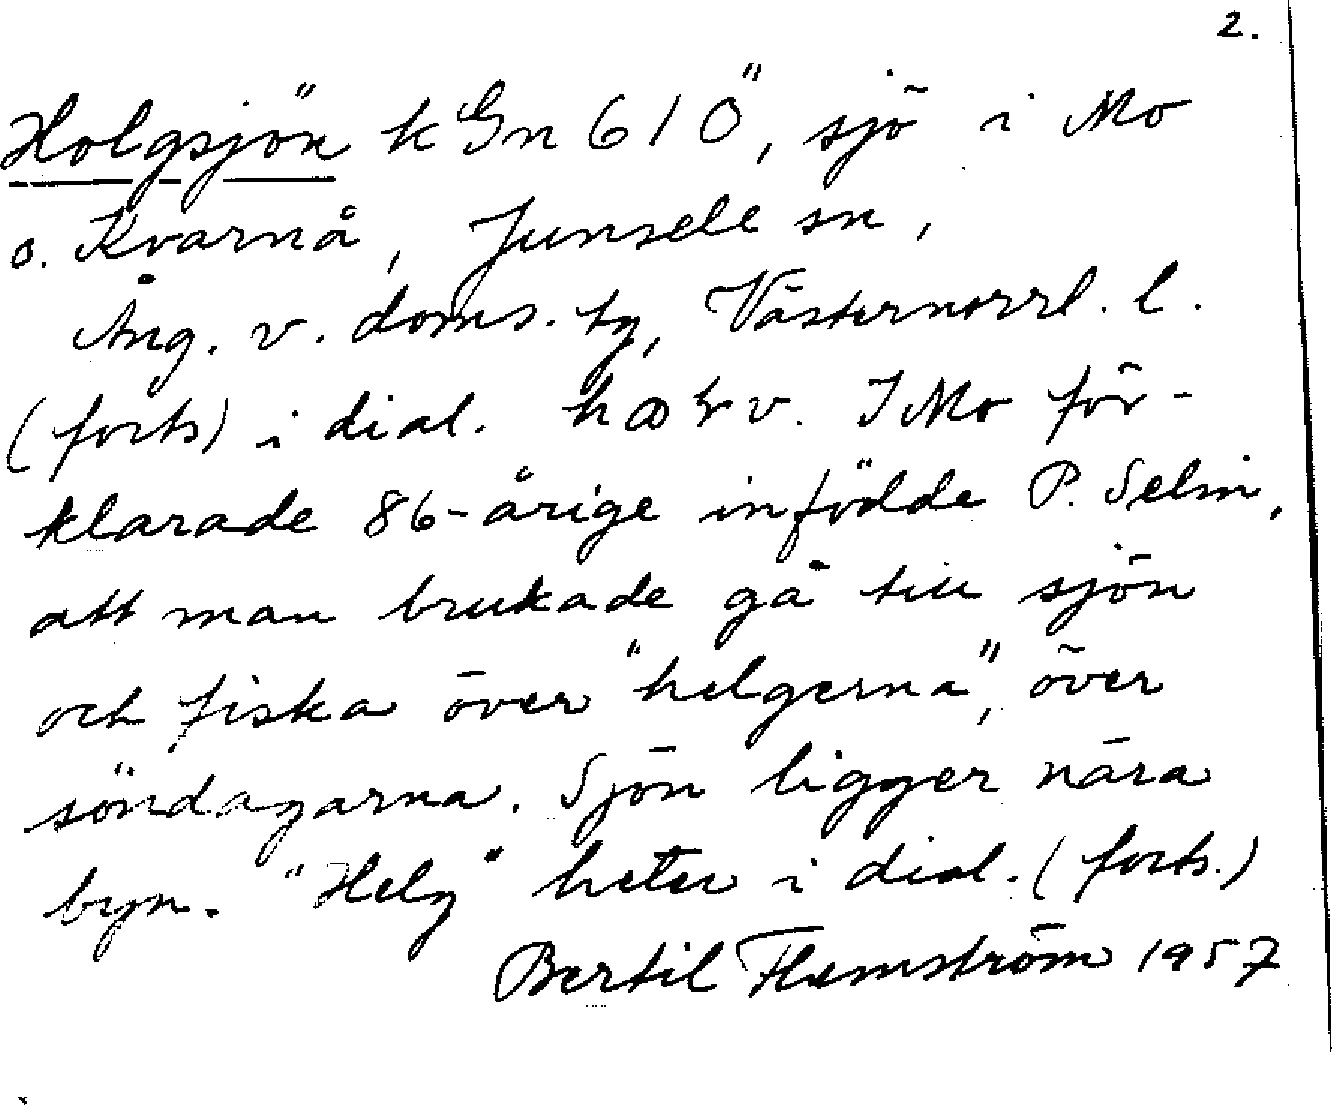 2.
Holgsjön k Gn 610", sjö i Mo
o. Kvarnå, Junsele sn,
Ång. v. doms. tg, Västernorrl. l.
(forts) i dial. I Mo för-
klarade 86-årige infödde P. Selin,
att man brukade gå till sjön
och fiska över "helgerna", över
söndagarna. Sjön ligger nära
byn. "Helg" heter i dial. (forts.)
Bertil Flemström 1957